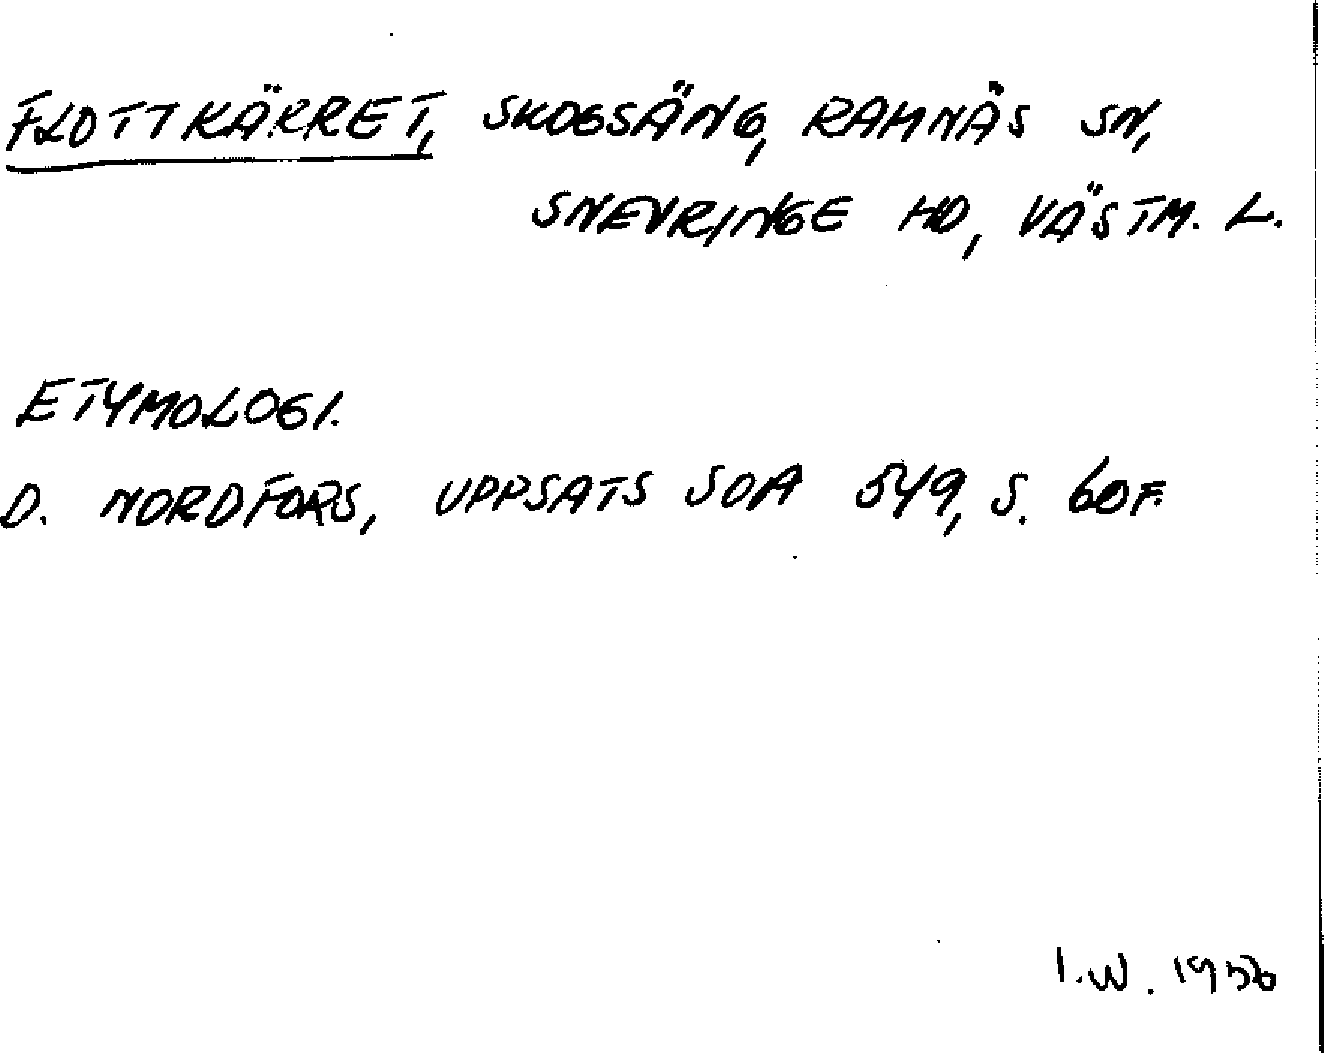 FLOTTKÄRRET, SKOGSÄNG, RAMNÄS SN,
SNEVRINGE HD, VÄSTM. L.
ETYMOLOGI.
D. NORDFORS, UPPSATS SOA 549, S. 60F.
I.W. 1956